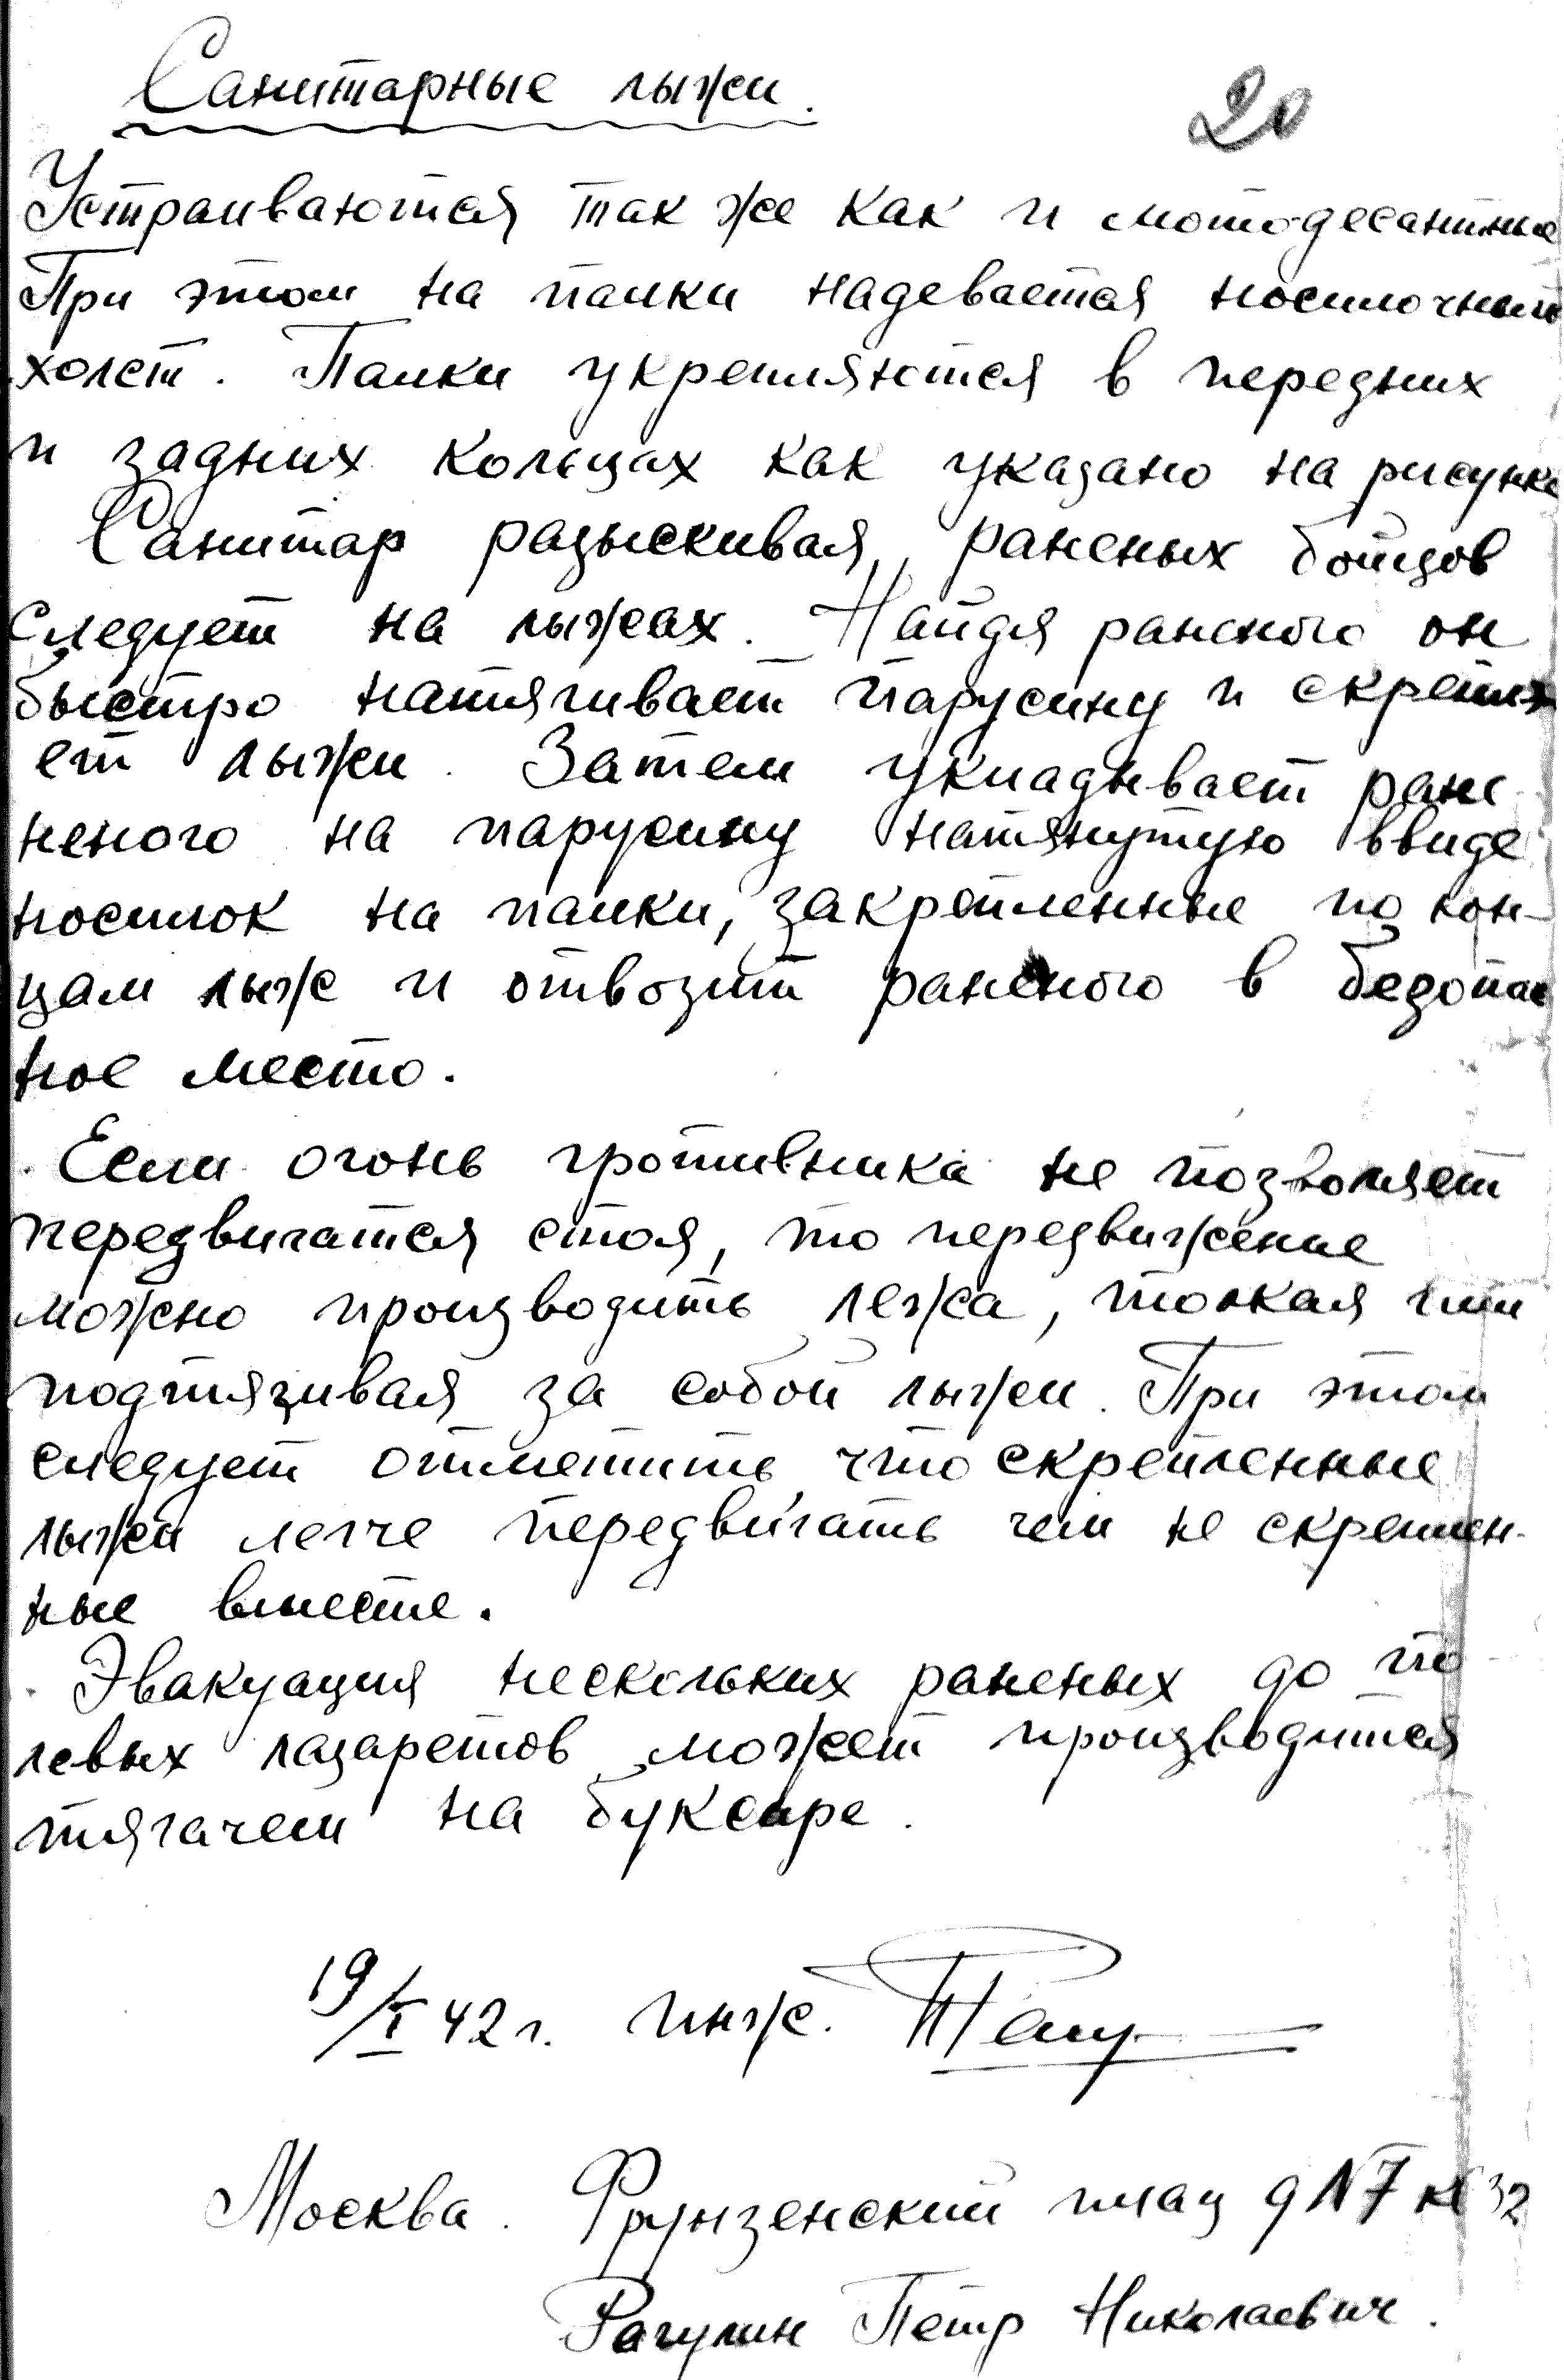 Санитарные лыжи.
20
Устраиваются так же как и мотодесантные
При этом на палки надевается носилочный
холст. Палки укрепляются в передних
и задних кольцах как указано на рисунке
Санитар разыскивая, раненых бойцов
следует на лыжах. Найдя раненого он
быстро натягивает парусину и скрепля
ет лыжи. Затем укладывает ране
неного на парусину натянутую ввиде
носилок на палки, закрепленные по кон-
цам лыж и отвозит раненого в безопас
ное место.
Если огонь противника не позволяет
передвигатся стоя, то передвижение
можно производить лежа, толкая или
подтягивая за собой лыжи. При этом
следует отметить что скрепленные
лыжи легче передвигать чем не скреплен-
ные вместе.
Эвакуация нескольких раненых до по
левых лазаретов может производится
тягачем на буксире.
19/I 42 г. инж.
Москва. Фрунзенский плац д N 7 к 32
Рагулин Петр Николаевич.